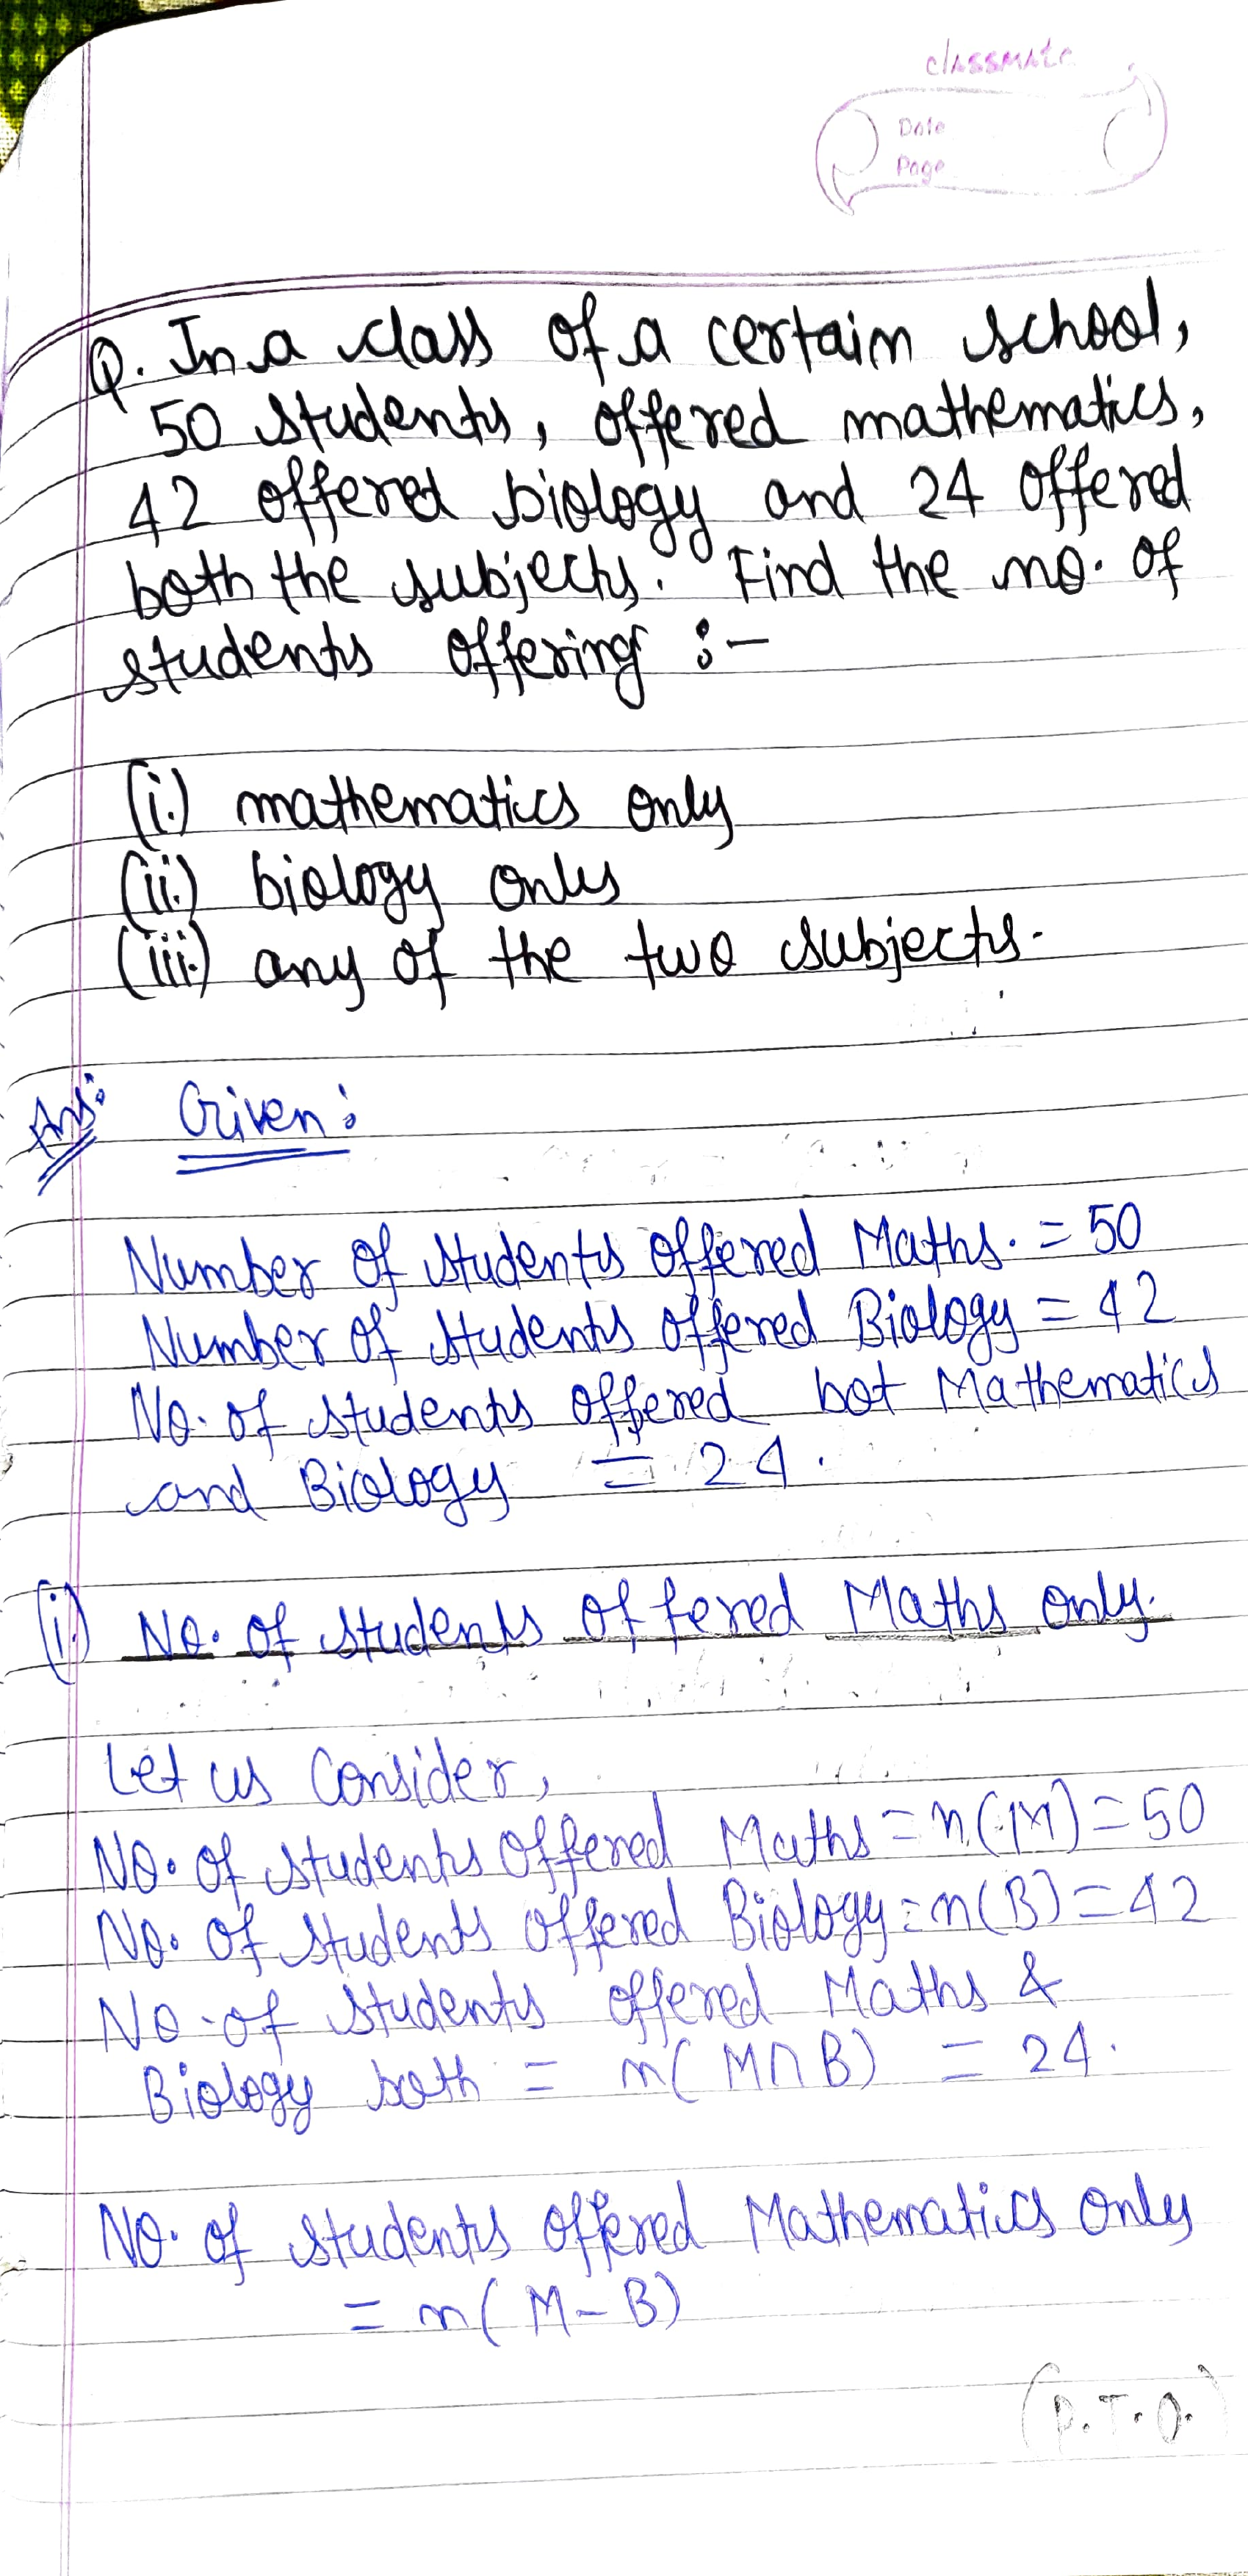 classmate
Date
Page
Q. In a class of a certain school,
50 students, offered mathematics,
42 offered biology and 24 offered
both the subjects. Find the no. of
students offering :-
(i.) mathematics only
(ii.) biology only
(iii.) any of the two subjects.
Ans: Given:
Number of students offered Maths. = 50
Number of students offered Biology = 42
No. of students offered bot Mathematics
and Biology = 24.
(i.) No. of students offered Maths only.
Let us Consider,
No. of students offered Maths = n(M) = 50
No. of students offered Biology = n(B) = 42
No. of students offered Maths &
Biology both = n(M∩B) = 24.
No. of students offered Mathematics only
= n(M-B)
(P.T.O.)